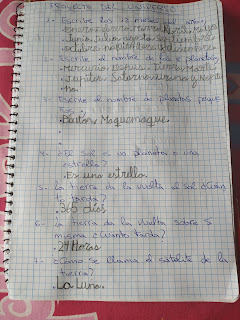 PROYECTO DEL UNIVERSO
1- Escribe los 12 meses del año.
Enero, Febrero, Marzo, Abril, Mayo
Junio, Julio, agosto, septiembre
octubre, noviembre, diciembre
2- Escribe el nombre de los 8 planetas
Mercurio, Venus, Tierra, Marte
Jupiter, Saturno, Urano y Neptu
no.
3- Escribe el nombre de planetas peque
ños.
Pluton, Maquemaque.
4- ¿El Sol es un planeta o una
estrella?
Es una estrella.
5- La tierra da la vuelta al sol ¿Cuán
to tarda?
365 días
6- La tierra da la vuelta sobre si
misma ¿Cuánto tarda?
24 Horas
7- ¿Cómo se llama el satelite de la
tierra?
La Luna.